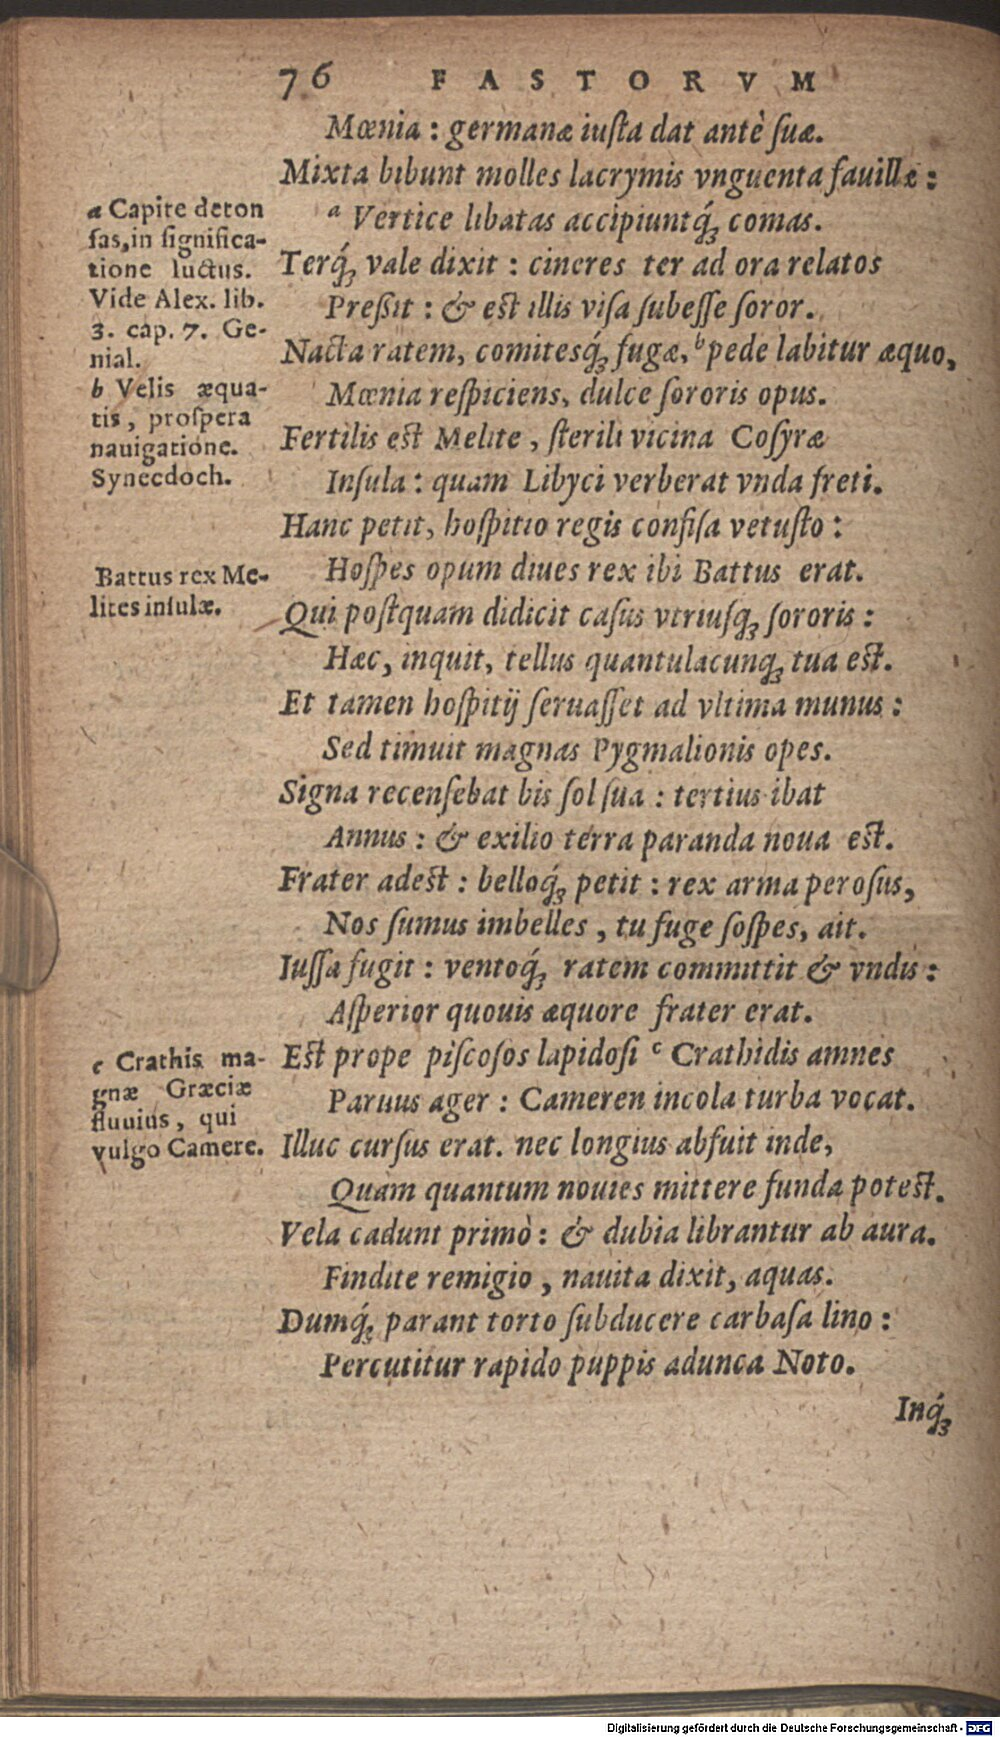 76 FASTORVM
Mœnia : germanæ iusta dat antè suæ.
Mixta bibunt molles lacrymis vnguenta fauillæ :
a Vertice libatas accipiuntq́ꝫ comas.
Terq́ꝫ vale dixit : cineres ter ad ora relatos
Preßit : & est illis visa subesse soror.
Nacta ratem, comitesq́ꝫ fugæ, b pede labitur æquo,
Mœnia respiciens, dulce sororis opus.
Fertilis est Melite , sterili vicina Cosyræ
Insula : quam Libyci verberat vnda freti.
Hanc petit, hospitio regis confisa vetusto :
Hospes opum diues rex ibi Battus erat.
Qui postquam didicit casus vtriusqꝫ sororis :
Hæc, inquit, tellus quantulacunqꝫ tua est.
Et tamen hospitij seruasset ad vltima munus :
Sed timuit magnas Pygmalionis opes.
Signa recensebat bis sol sua : tertius ibat
Annus : & exilio terra paranda noua est.
Frater adest : belloq́ꝫ petit : rex arma perosus,
Nos sumus imbelles , tu fuge sospes, ait.
Iussa fugit : ventoq́ꝫ ratem committit & vndis :
Asperior quouis æquore frater erat.
Est prope piscosos lapidosi c Crathidis amnes
Paruus ager : Cameren incola turba vocat.
Illuc cursus erat. nec longius abfuit inde,
Quam quantum nouies mittere funda potest.
Vela cadunt primò : & dubia librantur ab aura.
Findite remigio , nauita dixit, aquas.
Dumq́ꝫ parant torto subducere carbasa lino :
Percutitur rapido puppis adunca Noto.
Inq́ꝫ
a Capite deton
sas,in significa-
tione luctus.
Vide Alex. lib.
3. cap. 7. Ge-
nial.
b Velis æqua-
tis, prospera
nauigatione.
Synecdoch.
Battus rex Me-
lites insulæ.
c Crathis ma-
gnæ Græciæ
fluuius, qui
vulgo Camere.
Digitalisierung gefördert durch die Deutsche Forschungsgemeinschaft - DFG